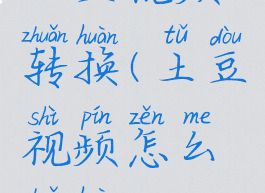 zhuǎn huàn tǔ dòu
转换(土豆
shì pín zěn me
视频怎么